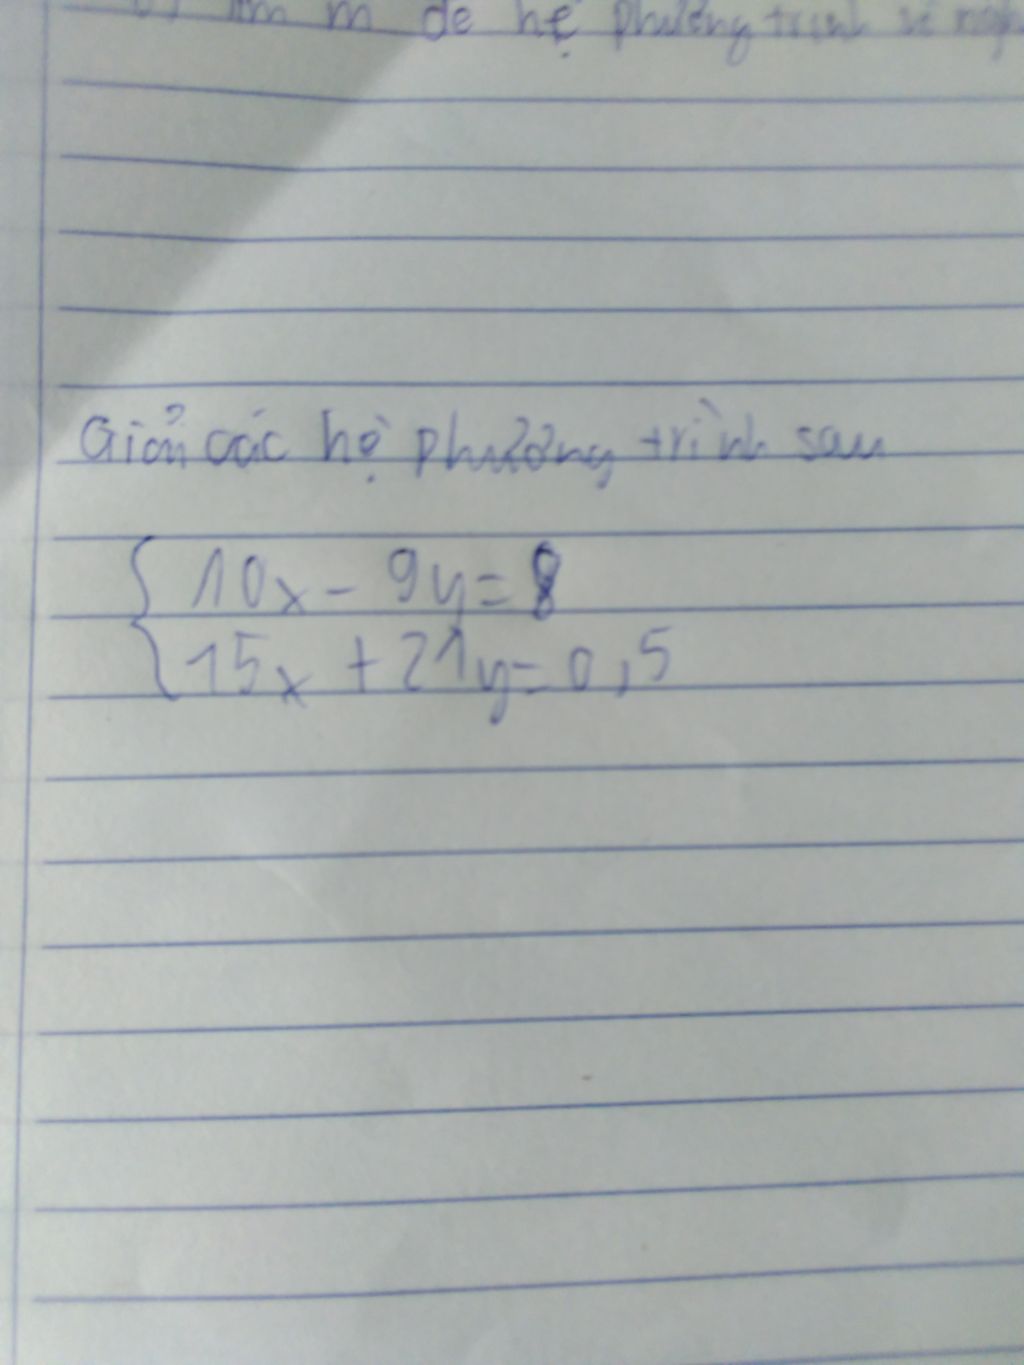 m m để hệ phương trình vô
Giải các hệ phương trình sau
10x - 9y = 8
15x + 21y = 0,5